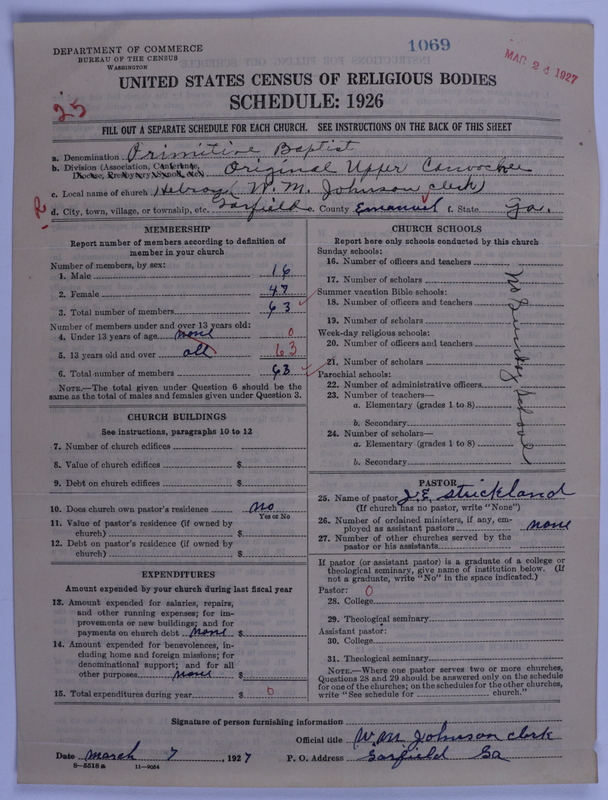 DEPARTMENT OF COMMERCE
BUREAU OF THE CENSUS
WASHINGTON
1069
MAR 24 1927
UNITED STATES CENSUS OF RELIGIOUS BODIES
SCHEDULE: 1926
25
FILL OUT A SEPARATE SCHEDULE FOR EACH CHURCH. SEE INSTRUCTIONS ON THE BACK OF THIS SHEET
a. Denomination Primitive Baptist
b. Division (Association, Conference, Diocese, Presbytery, Synod, etc.) Original Upper Canoochee
c. Local name of church (W. M. Johnson clerk)
d. City, town, village, or township, etc. Garfield e. County Emanuel f. State Ga.
MEMBERSHIP
Report number of members according to definition of
member in your church
Number of members, by sex:
1. Male 16
2. Female 47
3. Total number of members 63
Number of members under and over 13 years old:
4. Under 13 years of age none 0
5. 13 years old and over all 63
6. Total number of members 63
NOTE.—The total given under Question 6 should be the
same as the total of males and females given under Question 3.
CHURCH BUILDINGS
See instructions, paragraphs 10 to 12
7. Number of church edifices
8. Value of church edifices $
9. Debt on church edifices $
10. Does church own pastor's residence no
Yes or No
11. Value of pastor's residence (if owned by
church) $
12. Debt on pastor's residence (if owned by
church) $
EXPENDITURES
Amount expended by your church during last fiscal year
13. Amount expended for salaries, repairs,
and other running expenses; for im-
provements or new buildings; and for
payments on church debt none $
14. Amount expended for benevolences, in-
cluding home and foreign missions; for
denominational support; and for all
other purposes none $
15. Total expenditures during year $ 0
CHURCH SCHOOLS
Report here only schools conducted by this church
Sunday schools:
16. Number of officers and teachers
17. Number of scholars
Summer vacation Bible schools:
18. Number of officers and teachers
19. Number of scholars
Week-day religious schools:
20. Number of officers and teachers
21. Number of scholars
Parochial schools:
22. Number of administrative officers
23. Number of teachers—
a. Elementary (grades 1 to 8)
b. Secondary
24. Number of scholars—
a. Elementary (grades 1 to 8)
b. Secondary
no Sunday School
PASTOR
25. Name of pastor J.E. Strickland
(If church has no pastor, write "None")
26. Number of ordained ministers, if any, em-
ployed as assistant pastors none
27. Number of other churches served by the
pastor or his assistants
If pastor (or assistant pastor) is a graduate of a college or
theological seminary, give name of institution below. (If
not a graduate, write "No" in the space indicated.)
Pastor: 0
28. College
29. Theological seminary
Assistant pastor:
30. College
31. Theological seminary
NOTE.—Where one pastor serves two or more churches,
Questions 28 and 29 should be answered only on the schedule
for one of the churches; on the schedules for the other churches,
write "See schedule for church."
Signature of person furnishing information
Official title W. M Johnson clerk
Date March 7, 1927 P. O. Address Garfield Ga
8—5518 a 11—9034